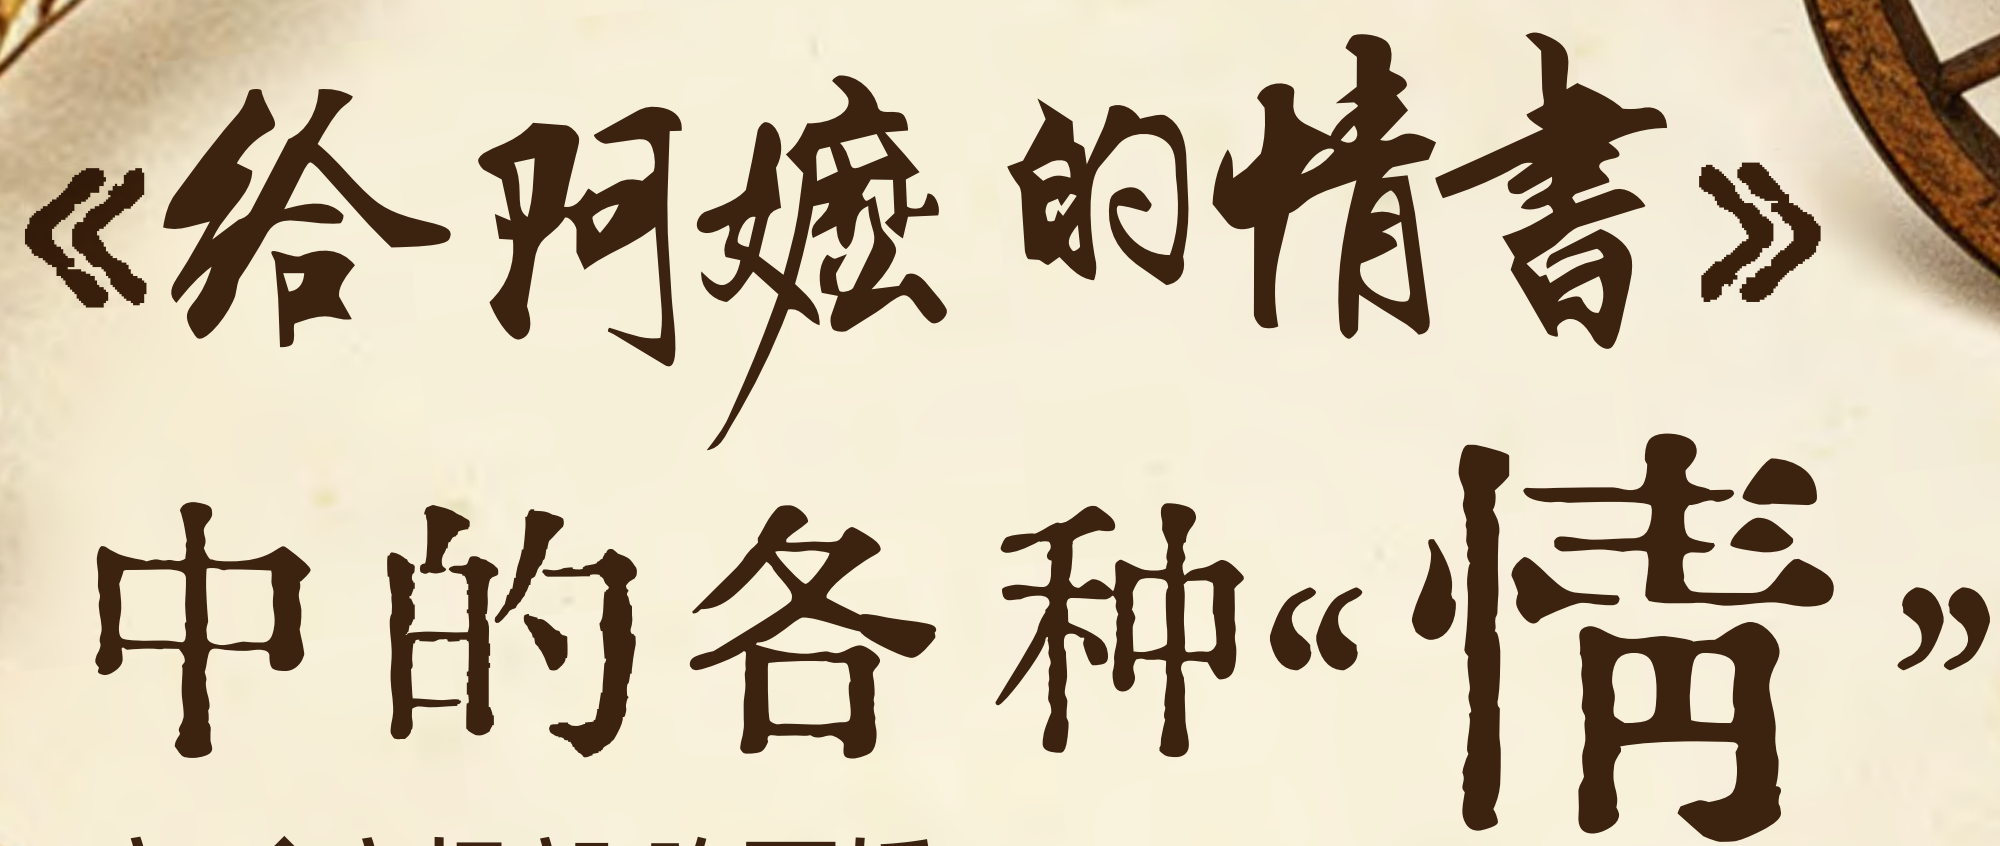 《给阿嬷的情書》
中的各种“情”